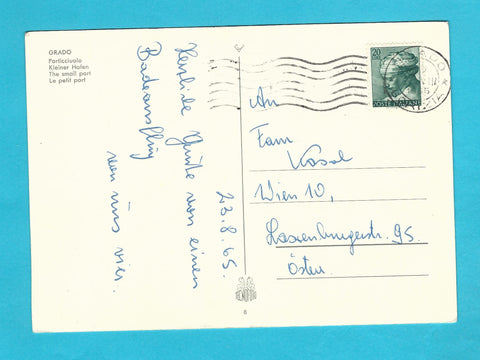 GRADO
Porticciuolo
Kleiner Hafen
The small port
Le petit port
23.8.65.
Herzliche Grüße von einem
Badeausflug
von uns vier.
An
Fam
Kosal
Wien 10,
Laxenburgerstr. 95
Österr.
20
POSTE ITALIANE
6